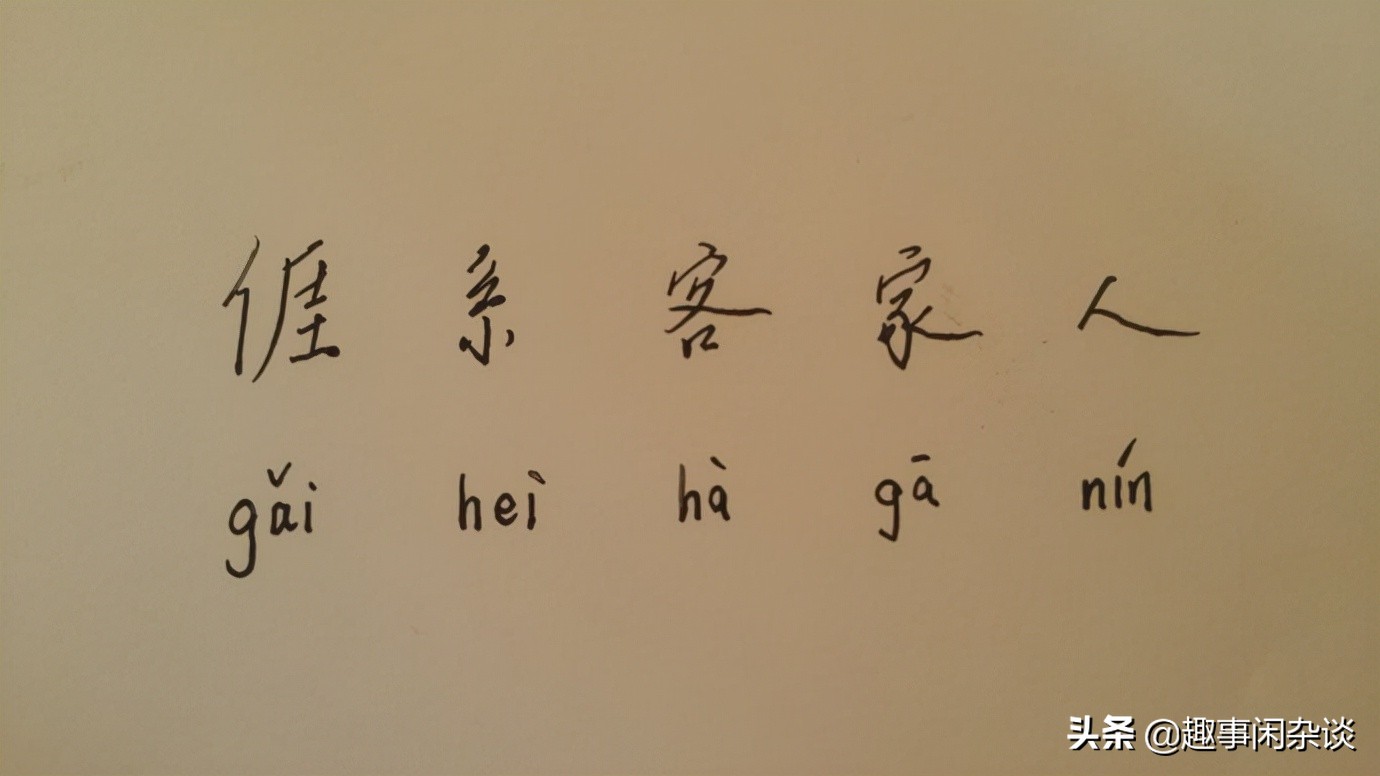 偓系客家人
gǎi heì hà gā nín
头条 @趣事闲杂谈